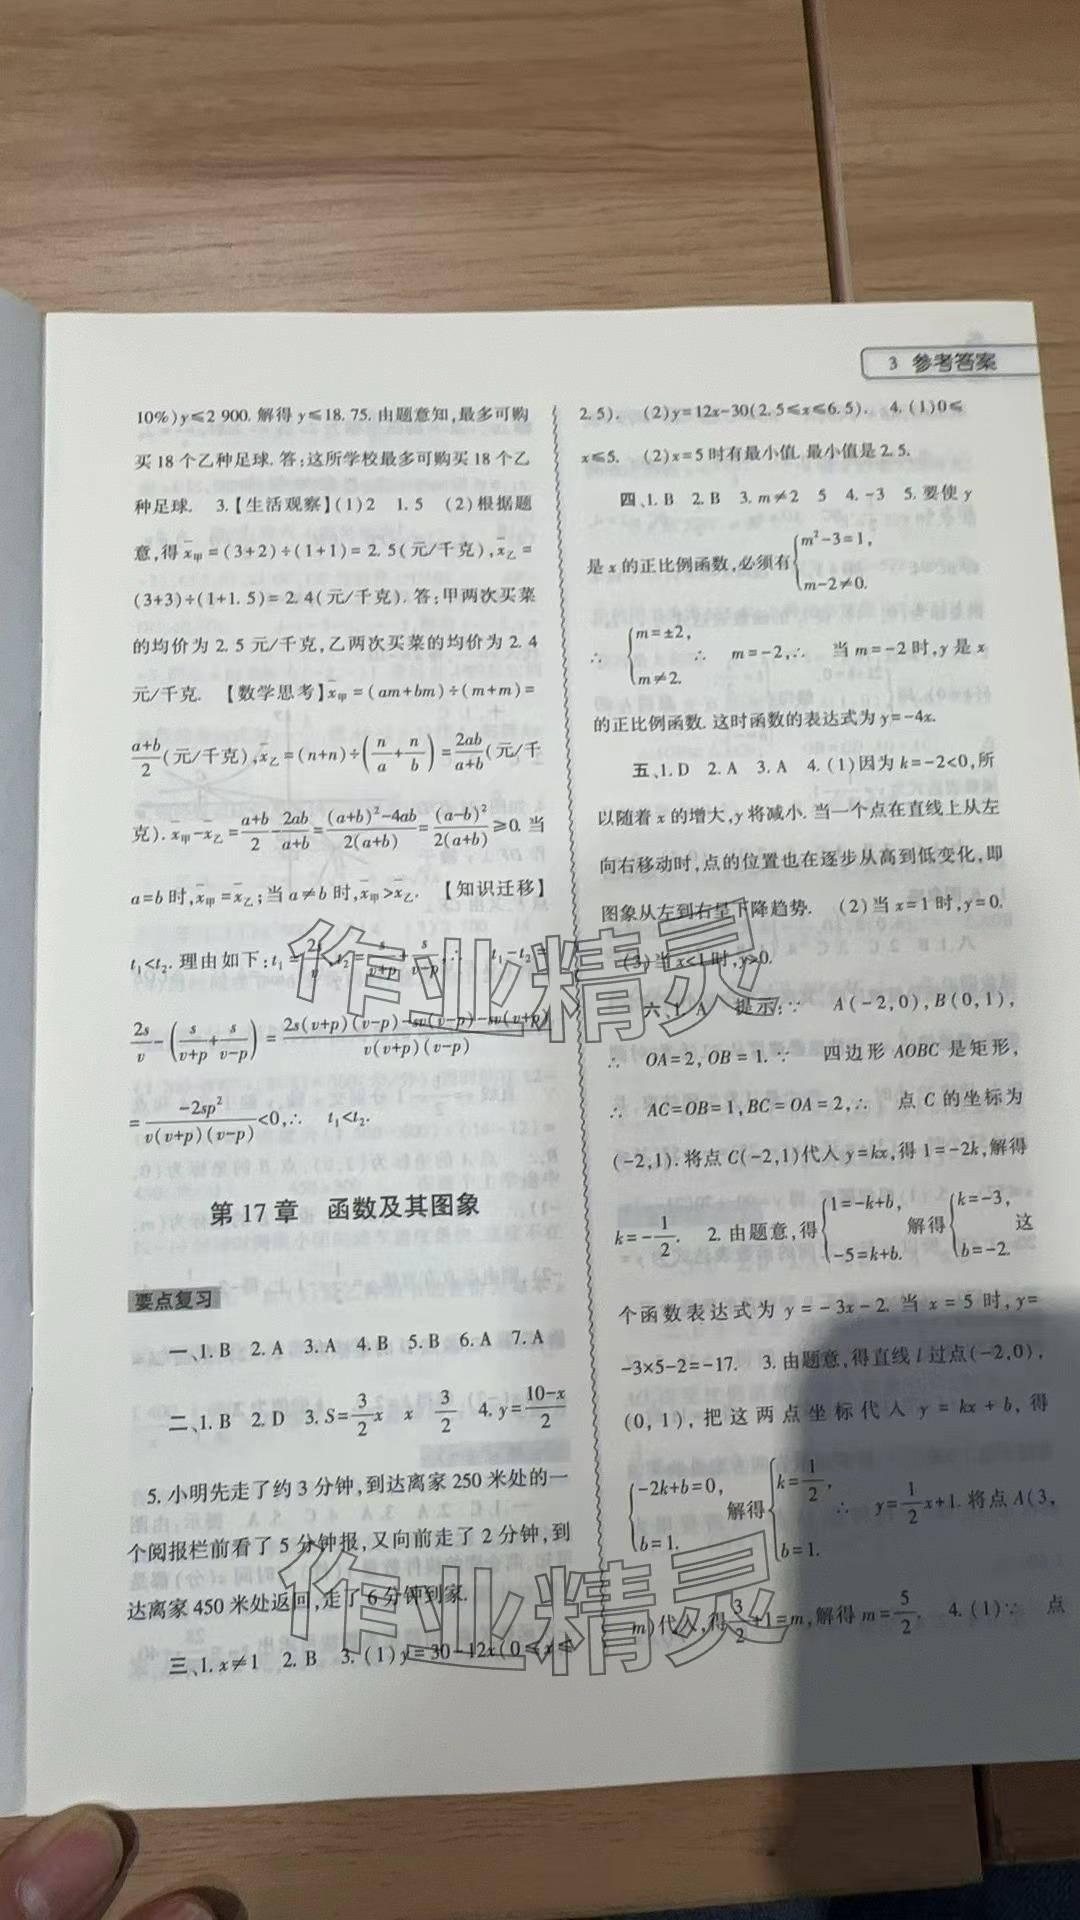 3 参考答案
10%)y≤2 900. 解得 y≤18.75. 由题意知,最多可购
买 18 个乙种足球. 答:这所学校最多可购买 18 个乙
种足球. 3.【生活观察】(1)2 1.5 (2)根据题
意,得 x̄甲=(3+2)÷(1+1)=2.5(元/千克),x̄乙=
(3+3)÷(1+1.5)=2.4(元/千克). 答:甲两次买菜
的均价为 2.5 元/千克,乙两次买菜的均价为 2.4
元/千克. 【数学思考】x̄甲=(am+bm)÷(m+m)=
(a+b)/2(元/千克),x̄乙=(n+n)÷(n/a+n/b)=2ab/(a+b)(元/千
克). x̄甲-x̄乙=(a+b)/2-2ab/(a+b)=((a+b)²-4ab)/(2(a+b))=(a-b)²/(2(a+b))≥0. 当
a=b 时,x̄甲=x̄乙;当 a≠b 时,x̄甲>x̄乙. 【知识迁移】
t₁<t₂. 理由如下:t₁=2s/v,t₂=s/(v+p)+s/(v-p),∴ t₁-t₂=
2s/v-(s/(v+p)+s/(v-p))=(2s(v+p)(v-p)-sv(v-p)-sv(v+p))/(v(v+p)(v-p))
=-2sp²/(v(v+p)(v-p))<0,∴ t₁<t₂.
第 17 章 函数及其图象
要点复习
一、1. B 2. A 3. A 4. B 5. B 6. A 7. A
二、1. B 2. D 3. S=3/2x x 3/2 4. y=(10-x)/2
5. 小明先走了约 3 分钟,到达离家 250 米处的一
个阅报栏前看了 5 分钟报,又向前走了 2 分钟,到
达离家 450 米处返回,走了 6 分钟到家.
三、1. x≠1 2. B 3. (1)y=30-12x(0≤x≤
2.5). (2)y=12x-30(2.5≤x≤6.5). 4. (1)0≤
x≤5. (2)x=5 时有最小值. 最小值是 2.5.
四、1. B 2. B 3. m≠2 5 4. -3 5. 要使 y
是 x 的正比例函数,必须有{m²-3=1, m-2≠0.
∴ {m=±2, m≠2. ∴ m=-2,∴ 当 m=-2 时,y 是 x
的正比例函数. 这时函数的表达式为 y=-4x.
五、1. D 2. A 3. A 4. (1)因为 k=-2<0,所
以随着 x 的增大,y 将减小. 当一个点在直线上从左
向右移动时,点的位置也在逐步从高到低变化,即
图象从左到右呈下降趋势. (2)当 x=1 时,y=0.
(3)当 x<1 时,y>0.
六、1. A 提示:∵ A(-2,0),B(0,1),
∴ OA=2,OB=1. ∵ 四边形 AOBC 是矩形,
∴ AC=OB=1,BC=OA=2,∴ 点 C 的坐标为
(-2,1). 将点 C(-2,1)代入 y=kx,得 1=-2k,解得
k=-1/2. 2. 由题意,得{1=-k+b, -5=k+b. 解得{k=-3, b=-2. 这
个函数表达式为 y=-3x-2. 当 x=5 时,y=
-3×5-2=-17. 3. 由题意,得直线 l 过点(-2,0),
(0,1),把这两点坐标代入 y=kx+b,得
{-2k+b=0, b=1. 解得{k=1/2, b=1. ∴ y=1/2x+1. 将点 A(3,
m)代入,得3/2+1=m,解得 m=5/2. 4. (1)∵ 点
作业精灵
作业精灵